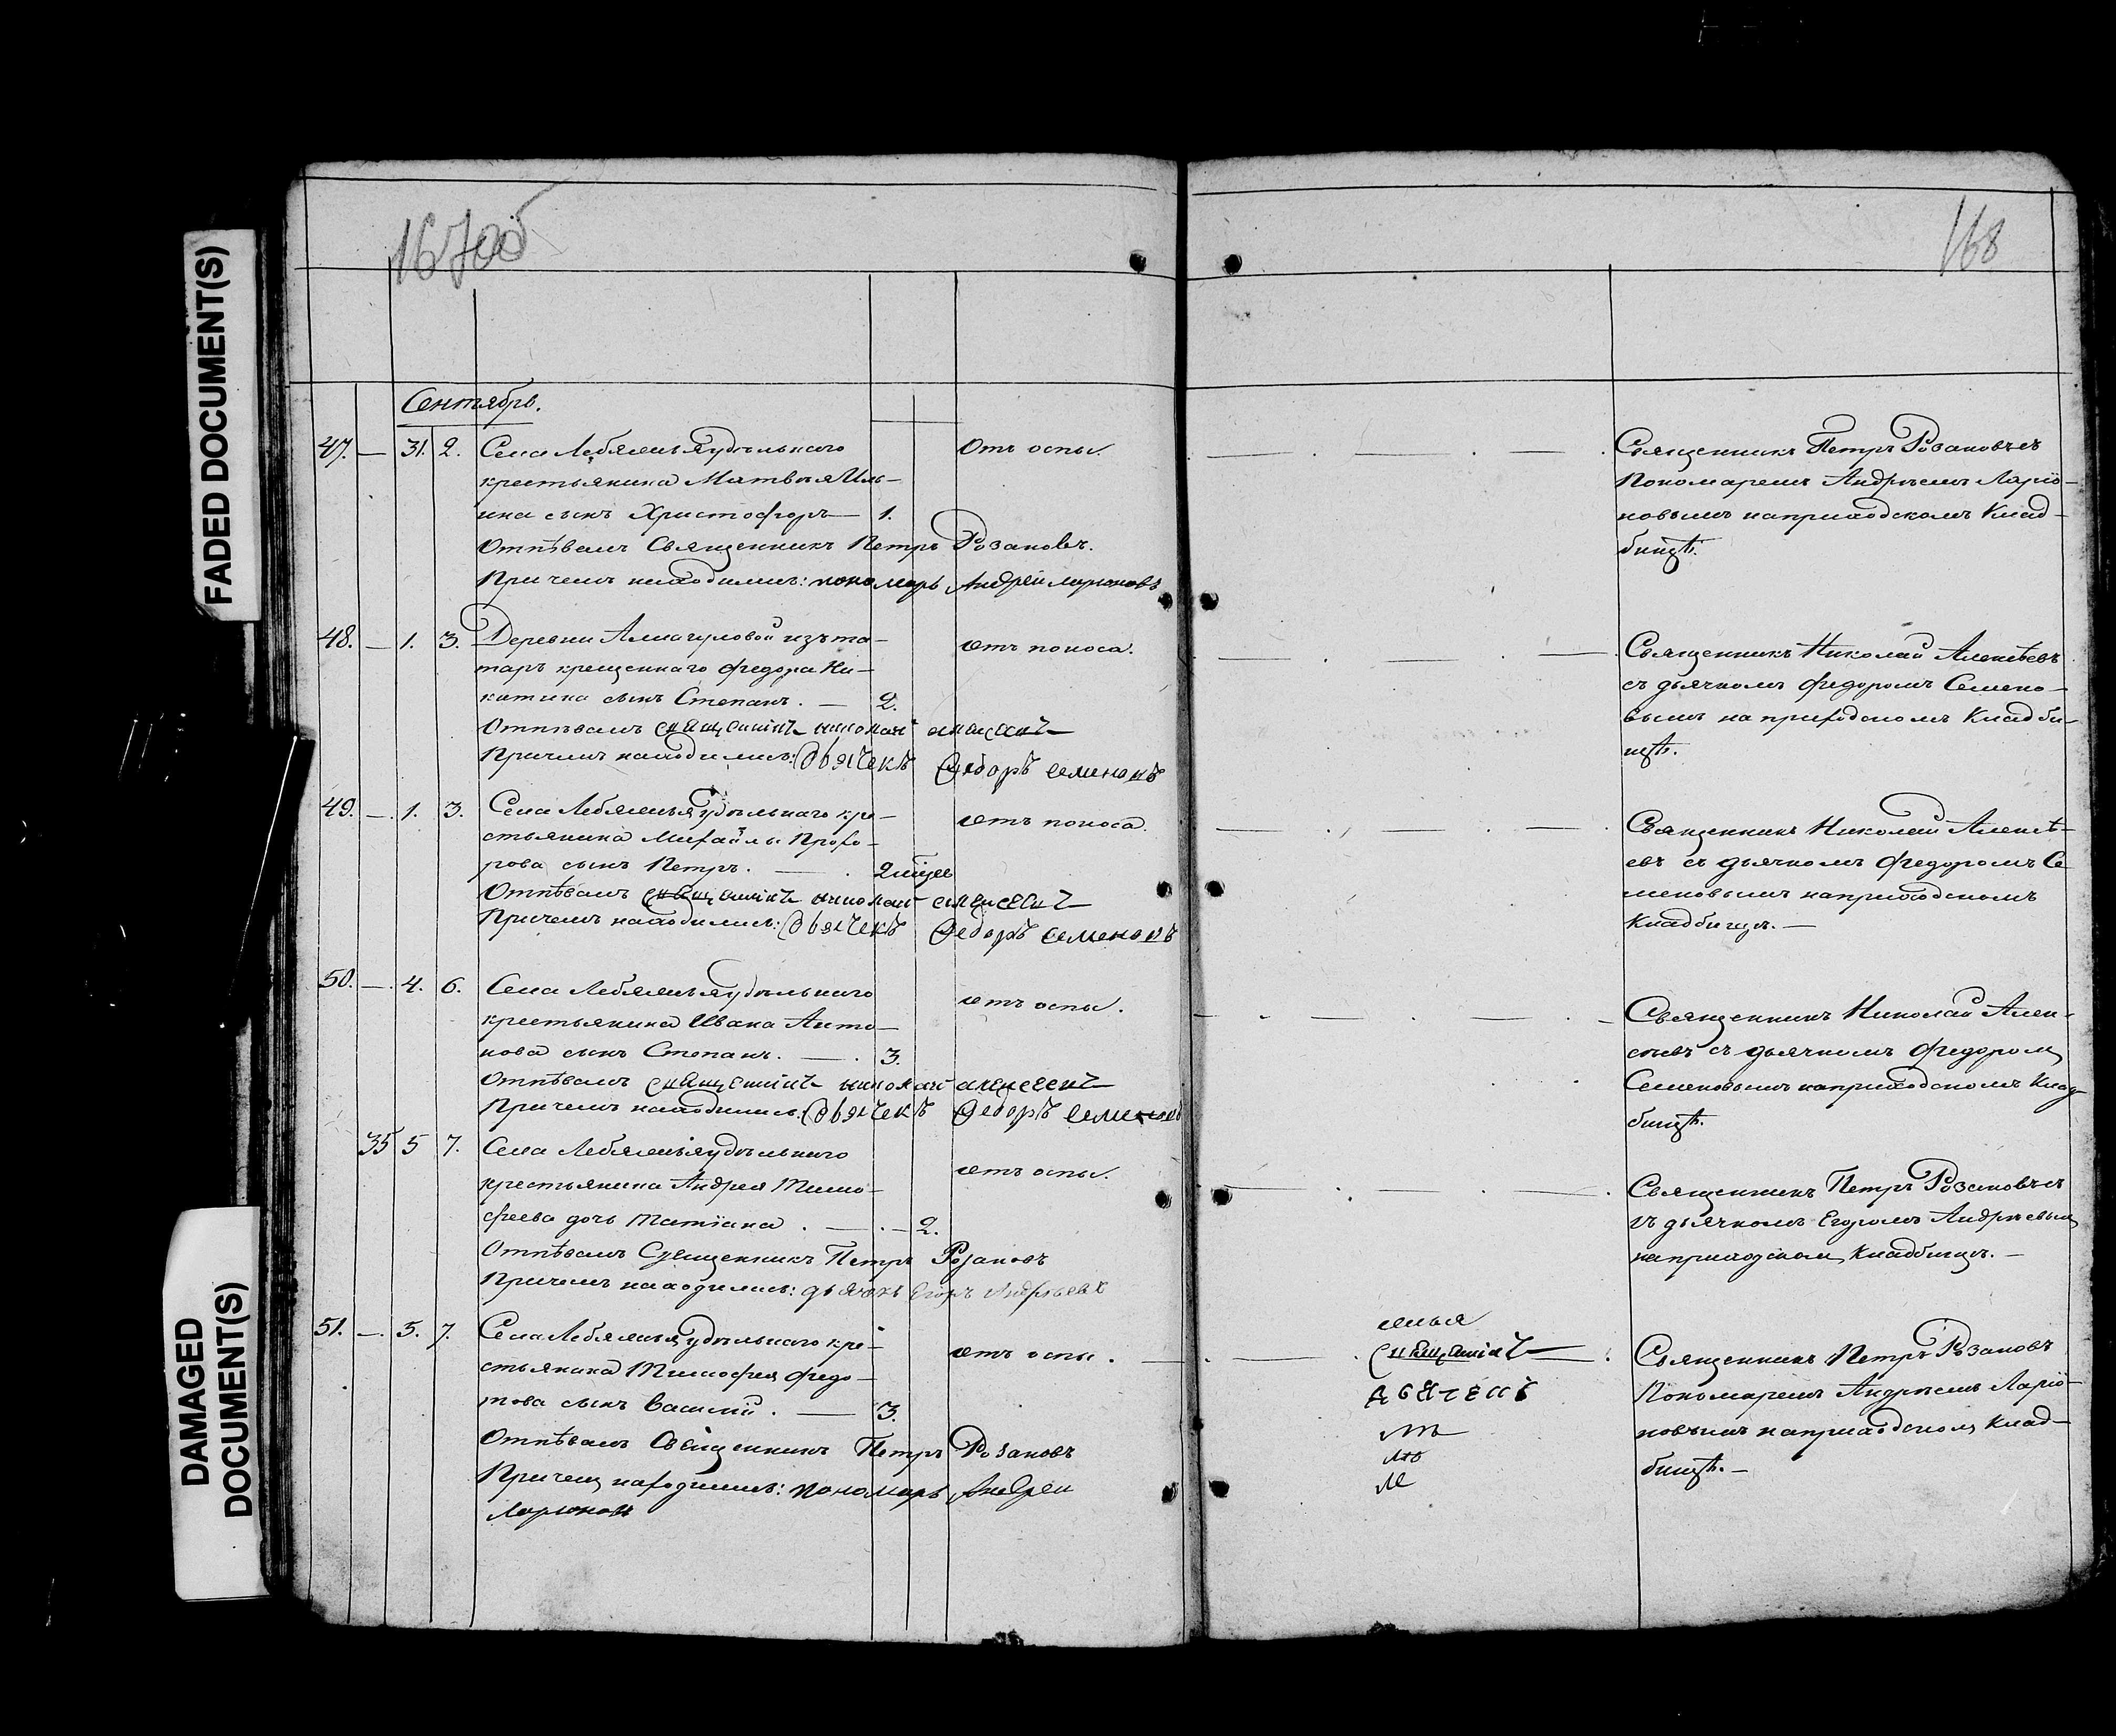 FADED DOCUMENT(S)
DAMAGED
DOCUMENT(S)
167об
168
Сентябрь.
47. — 31. 2. Села Лебяжья удѣльнаго
крестьянина Матвѣя Иль-
ина сынъ Христофоръ — 1.
Отъ оспы.
Отпѣвалъ Священникъ Петръ Розановъ.
Причемъ находились: пономарь Андрей Ларионовъ
Священникъ Петръ Розановъ съ
Пономаремъ Андреемъ Ларіо-
новымъ на приходскомъ Клад-
бищѣ.
48. — 1. 3. Деревни изъ та-
таръ крещеннаго Федора Ни-
китина сынъ Степанъ. — 2.
отъ поноса.
Отпѣвалъ священникъ николай алексеевъ
Причемъ находились: дьячекъ Федоръ Семеновъ
Священникъ Николай Алексѣевъ
съ дьячкомъ Федоромъ Семено-
вымъ на приходскомъ Кладби-
щѣ.
49. — 1. 3. Села Лебяжья удѣльнаго кре-
стьянина Михайлы Прохо-
рова сынъ Петръ. — 2
отъ поноса.
Отпѣвалъ священникъ николай алексеевъ
Причемъ находились: дьячекъ Федоръ Семеновъ
Священникъ Николай Алексѣ-
евъ съ дьячкомъ Федоромъ Се
меновымъ на приходскомъ
Кладбищѣ. —
50. — 4. 6. Села Лебяжья удѣльнаго
крестьянина Ивана Анто-
нова сынъ Степанъ. — 3.
отъ оспы.
Отпѣвалъ священникъ николай алексеевъ
Причемъ находились: дьячекъ Федоръ Семеновъ
Священникъ Николай Алек-
сѣевъ съ дьячкомъ Федоромъ
Семеновымъ на приходскомъ Клад
бищѣ.
35 5 7. Села Лебяжья удѣльнаго
крестьянина Андрея Тимо-
феева дочь Татіана . — 2.
отъ оспы.
Отпѣвалъ Священникъ Петръ Розановъ
Причемъ находились: дьячокъ Егоръ Андреевъ
Священникъ Петръ Розановъ съ
дьячкомъ Егоромъ Андреевымъ
на приходскомъ Кладбищѣ. —
51. — 5. 7. Села Лебяжья удѣльнаго кре-
стьянина Тимофея Федо-
това сынъ Василій. — 3.
отъ оспы.
Отпѣвалъ Священникъ Петръ Розановъ
Причемъ находились: пономарь Андрей
Ларионовъ
священникъ
Священникъ Петръ Розановъ
Пономаремъ Андреемъ Ларіо-
новымъ на приходскомъ Клад-
бищѣ. —